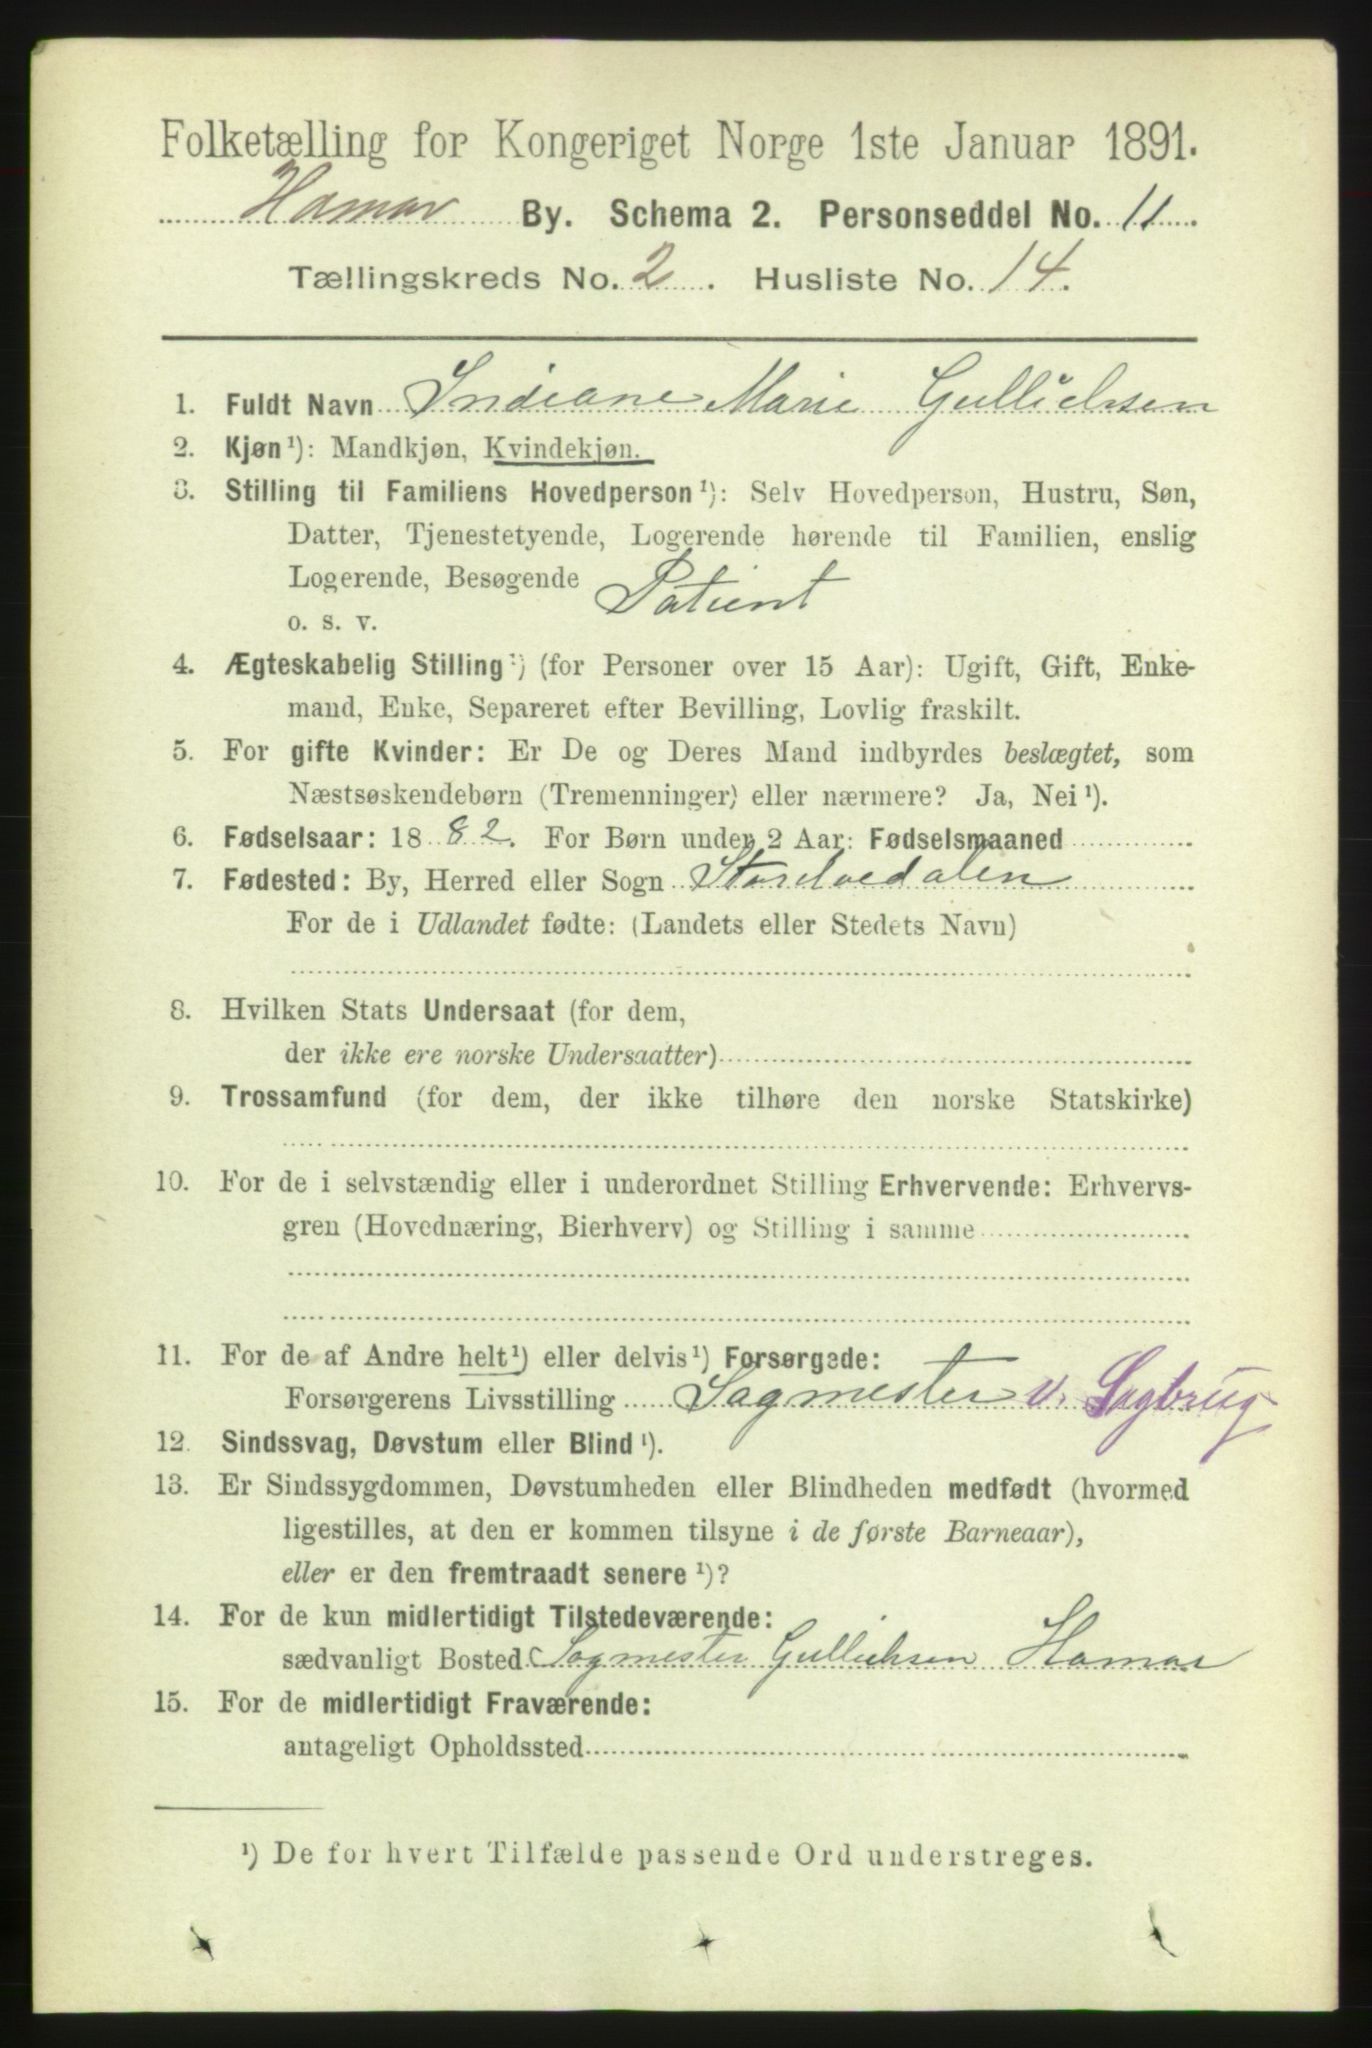 Folketælling for Kongeriget Norge 1ste Januar 1891.
Hamar By. Schema 2. Personseddel No. 11.
Tællingskreds No. 2. Husliste No. 14.
1. Fuldt Navn Indiane Marie Gullichsen
2. Kjøn¹): Mandkjøn, Kvindekjøn.
3. Stilling til Familiens Hovedperson¹): Selv Hovedperson, Hustru, Søn,
Datter, Tjenestetyende, Logerende hørende til Familien, enslig
Logerende, Besøgende Patient
o. s. v.
4. Ægteskabelig Stilling¹) (for Personer over 15 Aar): Ugift, Gift, Enke-
mand, Enke, Separeret efter Bevilling, Lovlig fraskilt.
5. For gifte Kvinder: Er De og Deres Mand indbyrdes beslægtet, som
Næstsøskendebørn (Tremenninger) eller nærmere? Ja, Nei¹).
6. Fødselsaar: 1882. For Børn under 2 Aar: Fødselsmaaned
7. Fødested: By, Herred eller Sogn Storelvedalen
For de i Udlandet fødte: (Landets eller Stedets Navn)
8. Hvilken Stats Undersaat (for dem,
der ikke ere norske Undersaatter)
9. Trossamfund (for dem, der ikke tilhøre den norske Statskirke)
10. For de i selvstændig eller i underordnet Stilling Erhvervende: Erhvervs-
gren (Hovednæring, Bierhverv) og Stilling i samme
11. For de af Andre helt¹) eller delvis¹) Forsørgede:
Forsørgerens Livsstilling Sagmester v. Sagbrug
12. Sindssvag, Døvstum eller Blind¹).
13. Er Sindssygdommen, Døvstumheden eller Blindheden medfødt (hvormed
ligestilles, at den er kommen tilsyne i de første Barneaar),
eller er den fremtraadt senere¹)?
14. For de kun midlertidigt Tilstedeværende:
sædvanligt Bosted Sagmester Gullichsen Hamar
15. For de midlertidigt Fraværende:
antageligt Opholdssted
¹) De for hvert Tilfælde passende Ord understreges.